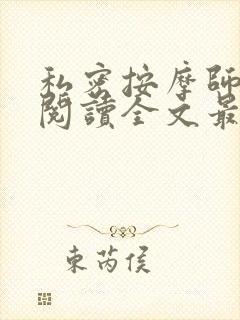 私密按摩師
閱讀全文最
東芮侯